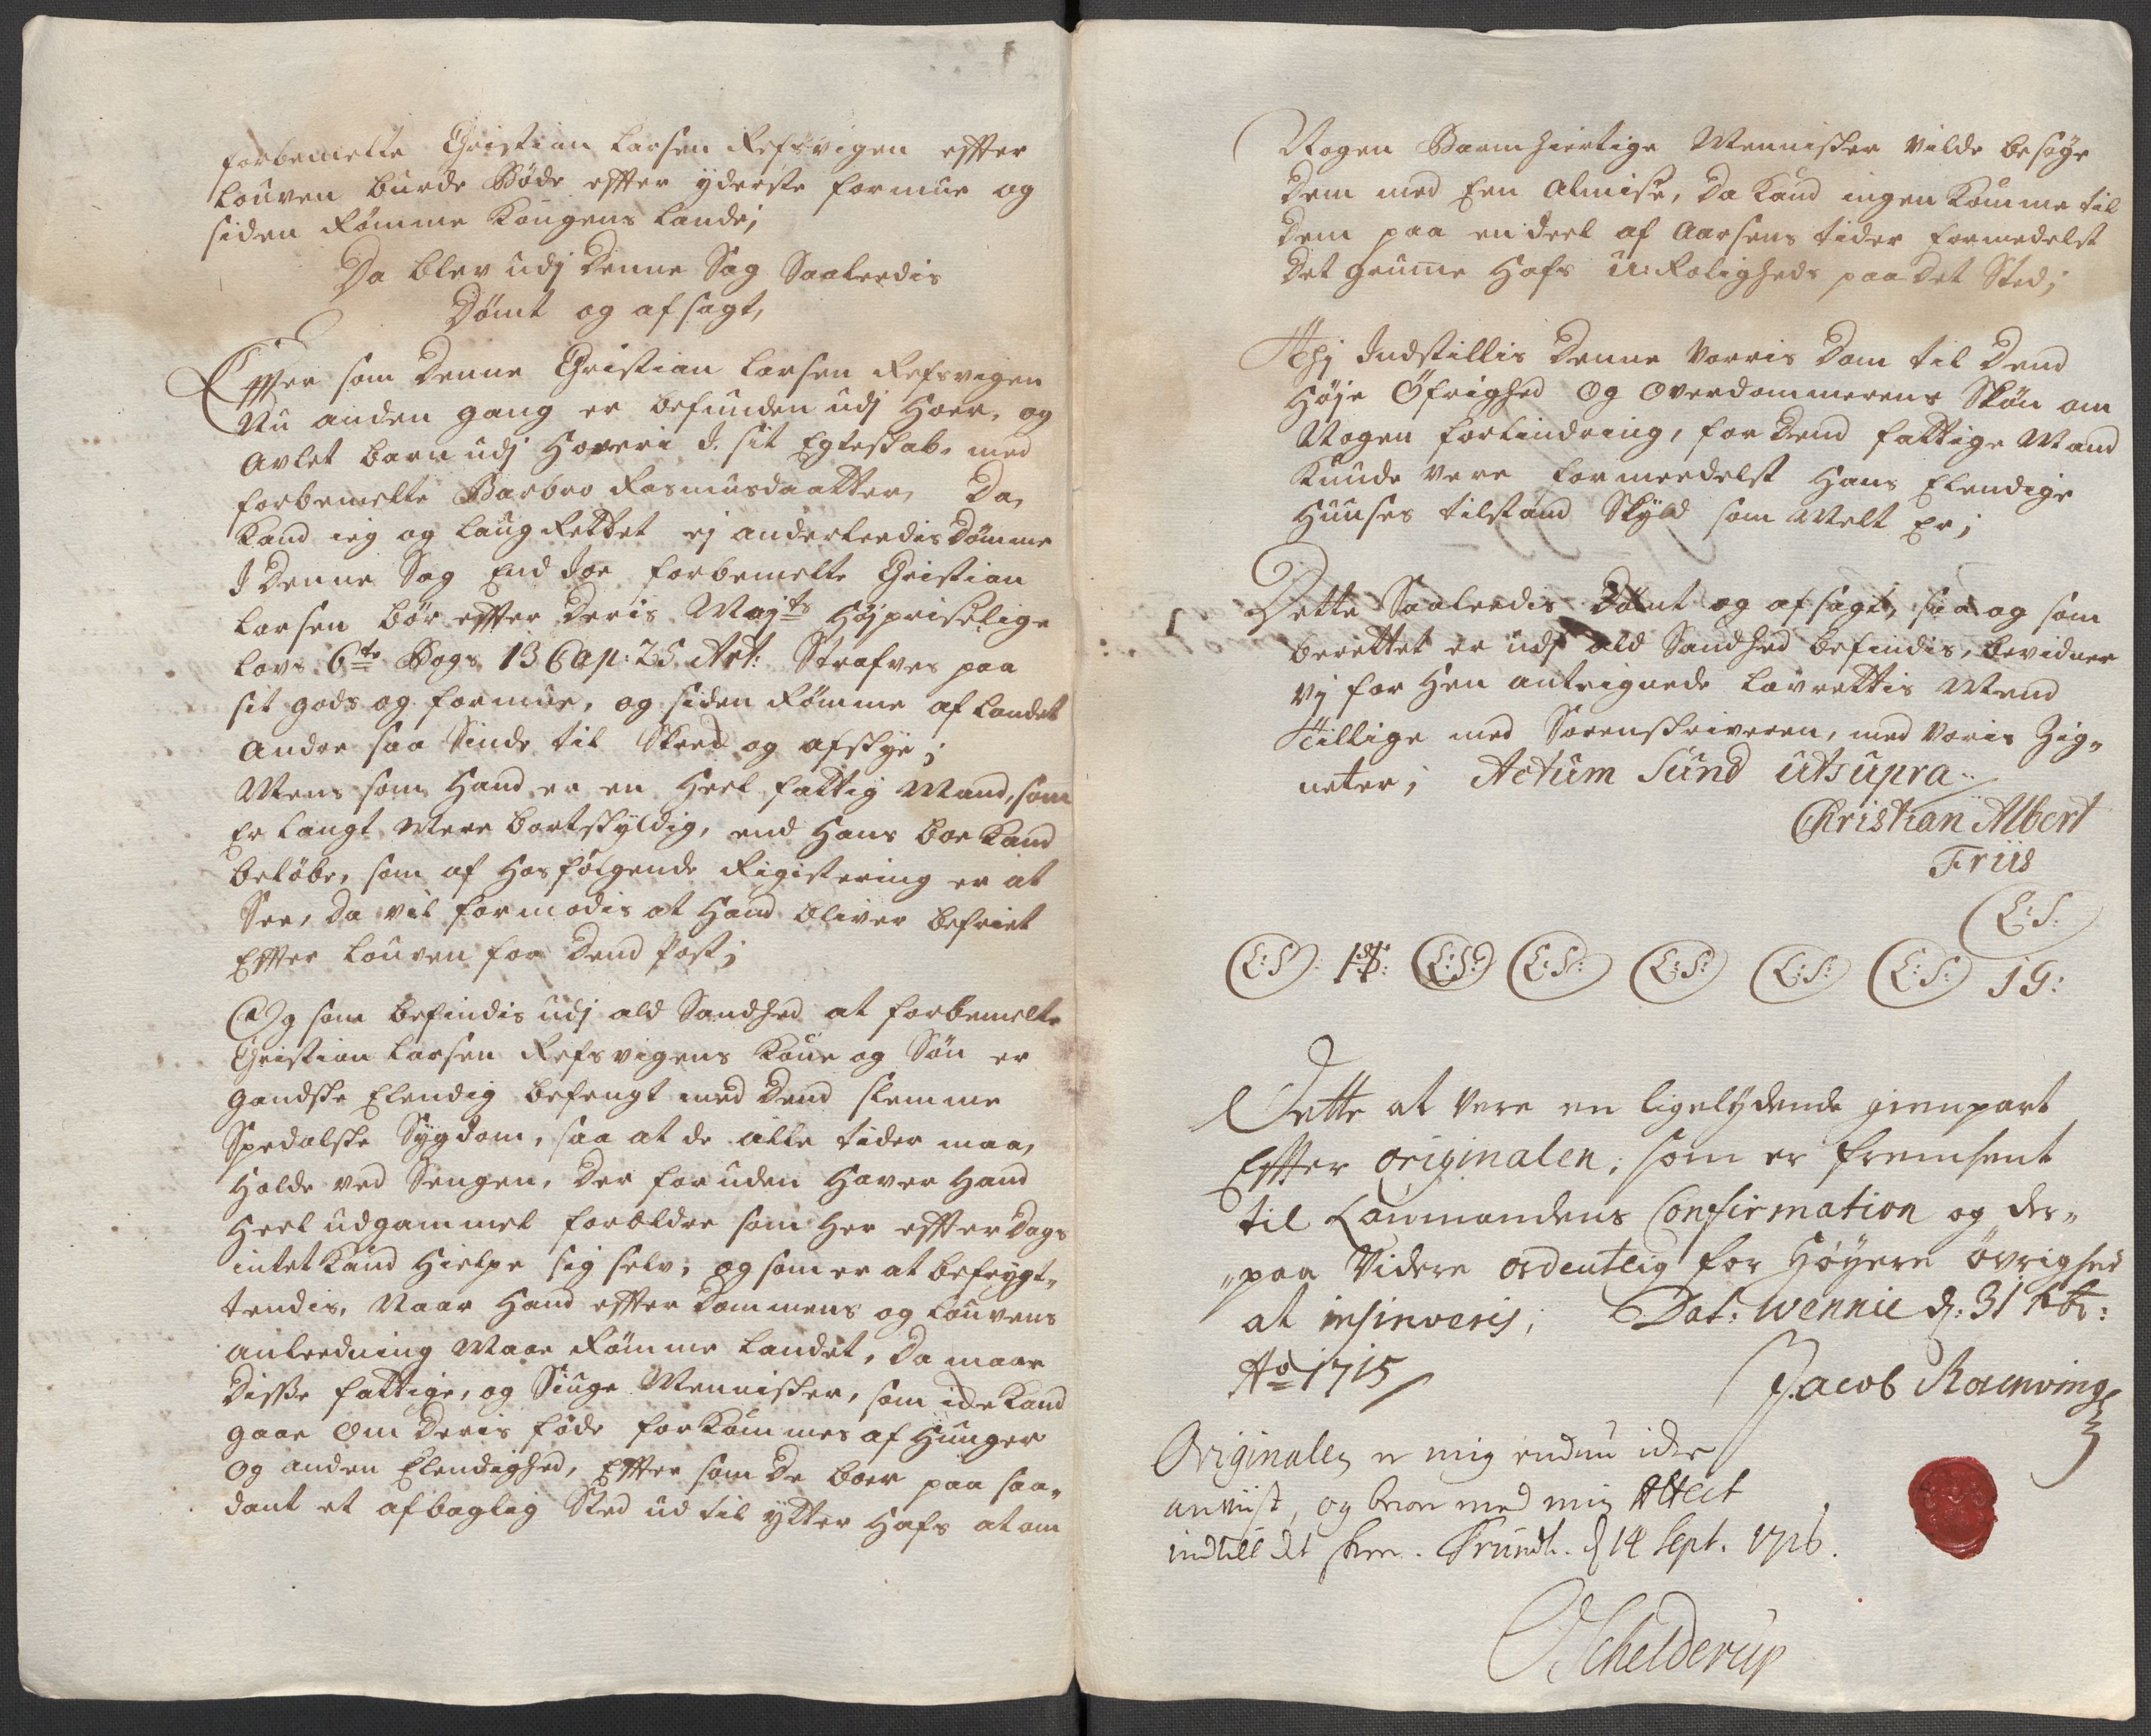 forbemelte Christian Larsen Refsvigen effter
Louven burde Bøde effter yderste formue og
siden Rømme Kongens Lande;
Da blev udj Denne Sag Saaleedis
Dømt og afsagt,
Effter som Denne Christian Larsen Refsvigen
Nu anden gang er befunden udj Hoer, og
Avlet barn udj Horeri i sit Egteskab, med
forbemelte Barbro Rasmusdaatter, Da,
Kand ieg og LaugRettet ej anderleedis Dømme
I Denne Sag End Ioe forbemelte Christian
Larsen bør effter Deris Mayts Højpriselige
Lovs 6te Bogs 13 Cap: 25 Art: Strafves paa
sit gods og formue, og siden Rømme af Landet
Andre saa Sinde til Skred og afskye;
Mens som Hand er en Heel fattig Mand, som
Er langt Mere bortskyldig, end Hans boe Kand
beløbe, som af Hosfølgende Rigistering er at
See, Da vil formodis at Hand bliver befriet
Effter Louven for Dend Post;
Og som befindis udj ald Sandhed at forbemelte
Christian Larsen Refsvigens Kone og Søn er
gandske Elendig befengt med Dend slemme
Spedalske Sygdom, saa at de alle tider maa,
Holde ved Sengen, Der foruden Haver Hand
Heel udgammel forældre som Her effter Dags
intet Kand Hielpe sig selv; og som er at befrygt-
tendis, Naar Hand effter Dommens og Louvens
anleedning Maae Rømme Landet, Da maae
Disse fattige, og Siuge Mennisker, som icke Kand
gaae Om Deris føde forKommes af Hunger
og anden Elendighed, Effter som De boer paa saa-
dant et afbaglig Sted ud til ytter Hafs at om
Nogen Barmhiertige Mennisker vilde besøge
Dem med Een Almise, Da Kand ingen Komme til
Dem paa en deel af Aarsens tider formedelst
Det grumme Hafs u:Roligheds paa Det Sted;
Thj Indstillis Denne Vorris Dom til Dend
Høje Øfrighed Og Overdommerens Skøn om
Nogen forlindring, for Dend fattige Mand
Kunde vere formeedelst Hans Elendige
Huuses tilstand Skyld som Melt Er;
Dette Saaleedis Dømt og afsagt, saa og som
berettet er udj ald Sandhed befindis, bevidner
vj for Hen anteignede Lavrettis Mend
Tillige med Sorenskriveren, med voris Zig-
neter; Actum Sund ut supra
Christian Albert
Friis
L:S:
L:S: L:S: L:S: L:S: L:S: L:S: IG:
Dette at vere en ligelydende gienpart
Effter Originalen; som er fremsent
til Laumandens Confirmation og der-
paa Videre ordentlig for Høyere Øvrighed
at insinveris; Dat: Wennie d: 31
Ao 1715
Jacob Rosenving
Originalen er mig endnu icke
anviist, og beroe med min Attest
indtill det skeer. Trundh. d 14 Sept. 1716.
Schelderup